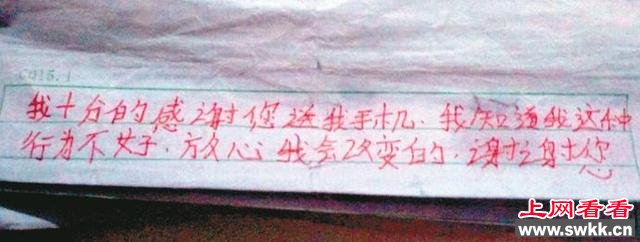 CQ15.1
我十分的感谢您送我手机.我知道我这种
行为不好.放心我会改变的.谢谢您
上网看看
www.swkk.cn